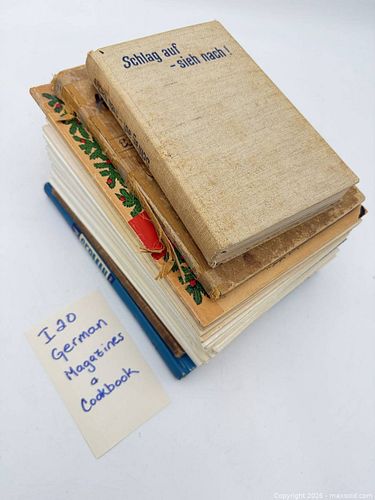 Schlag auf
- sieh nach!
GERMAN
I 20
German
Magazines
&
Cookbook
Copyright 2026 - maxsold.com